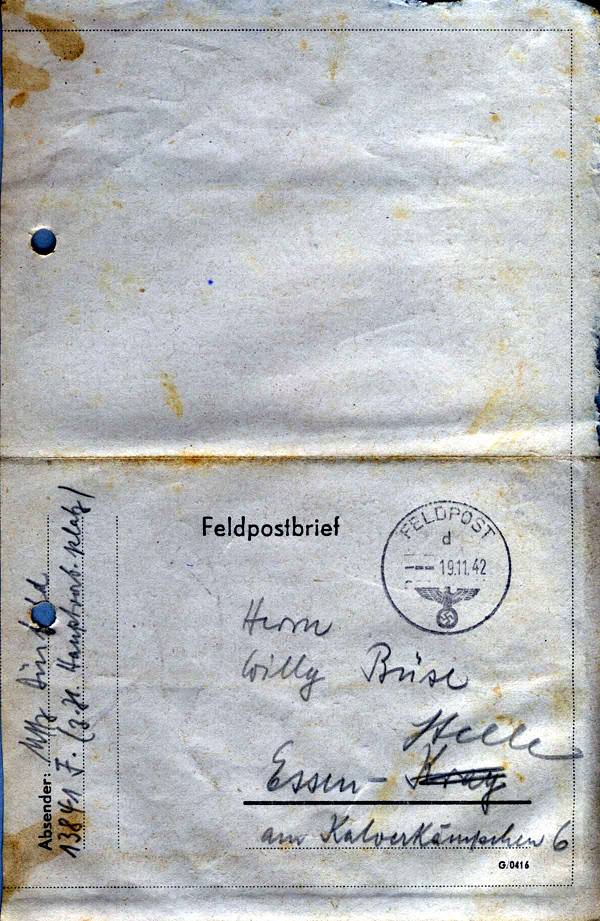 Feldpostbrief
FELDPOST
d
19.11.42
Herrn
Willy Büse
Steele
Essen- Kray
am Kalverkämpchen 6
G/0416
Absender: Uffz
13841 F. (z. H. Hauptverb.platz)